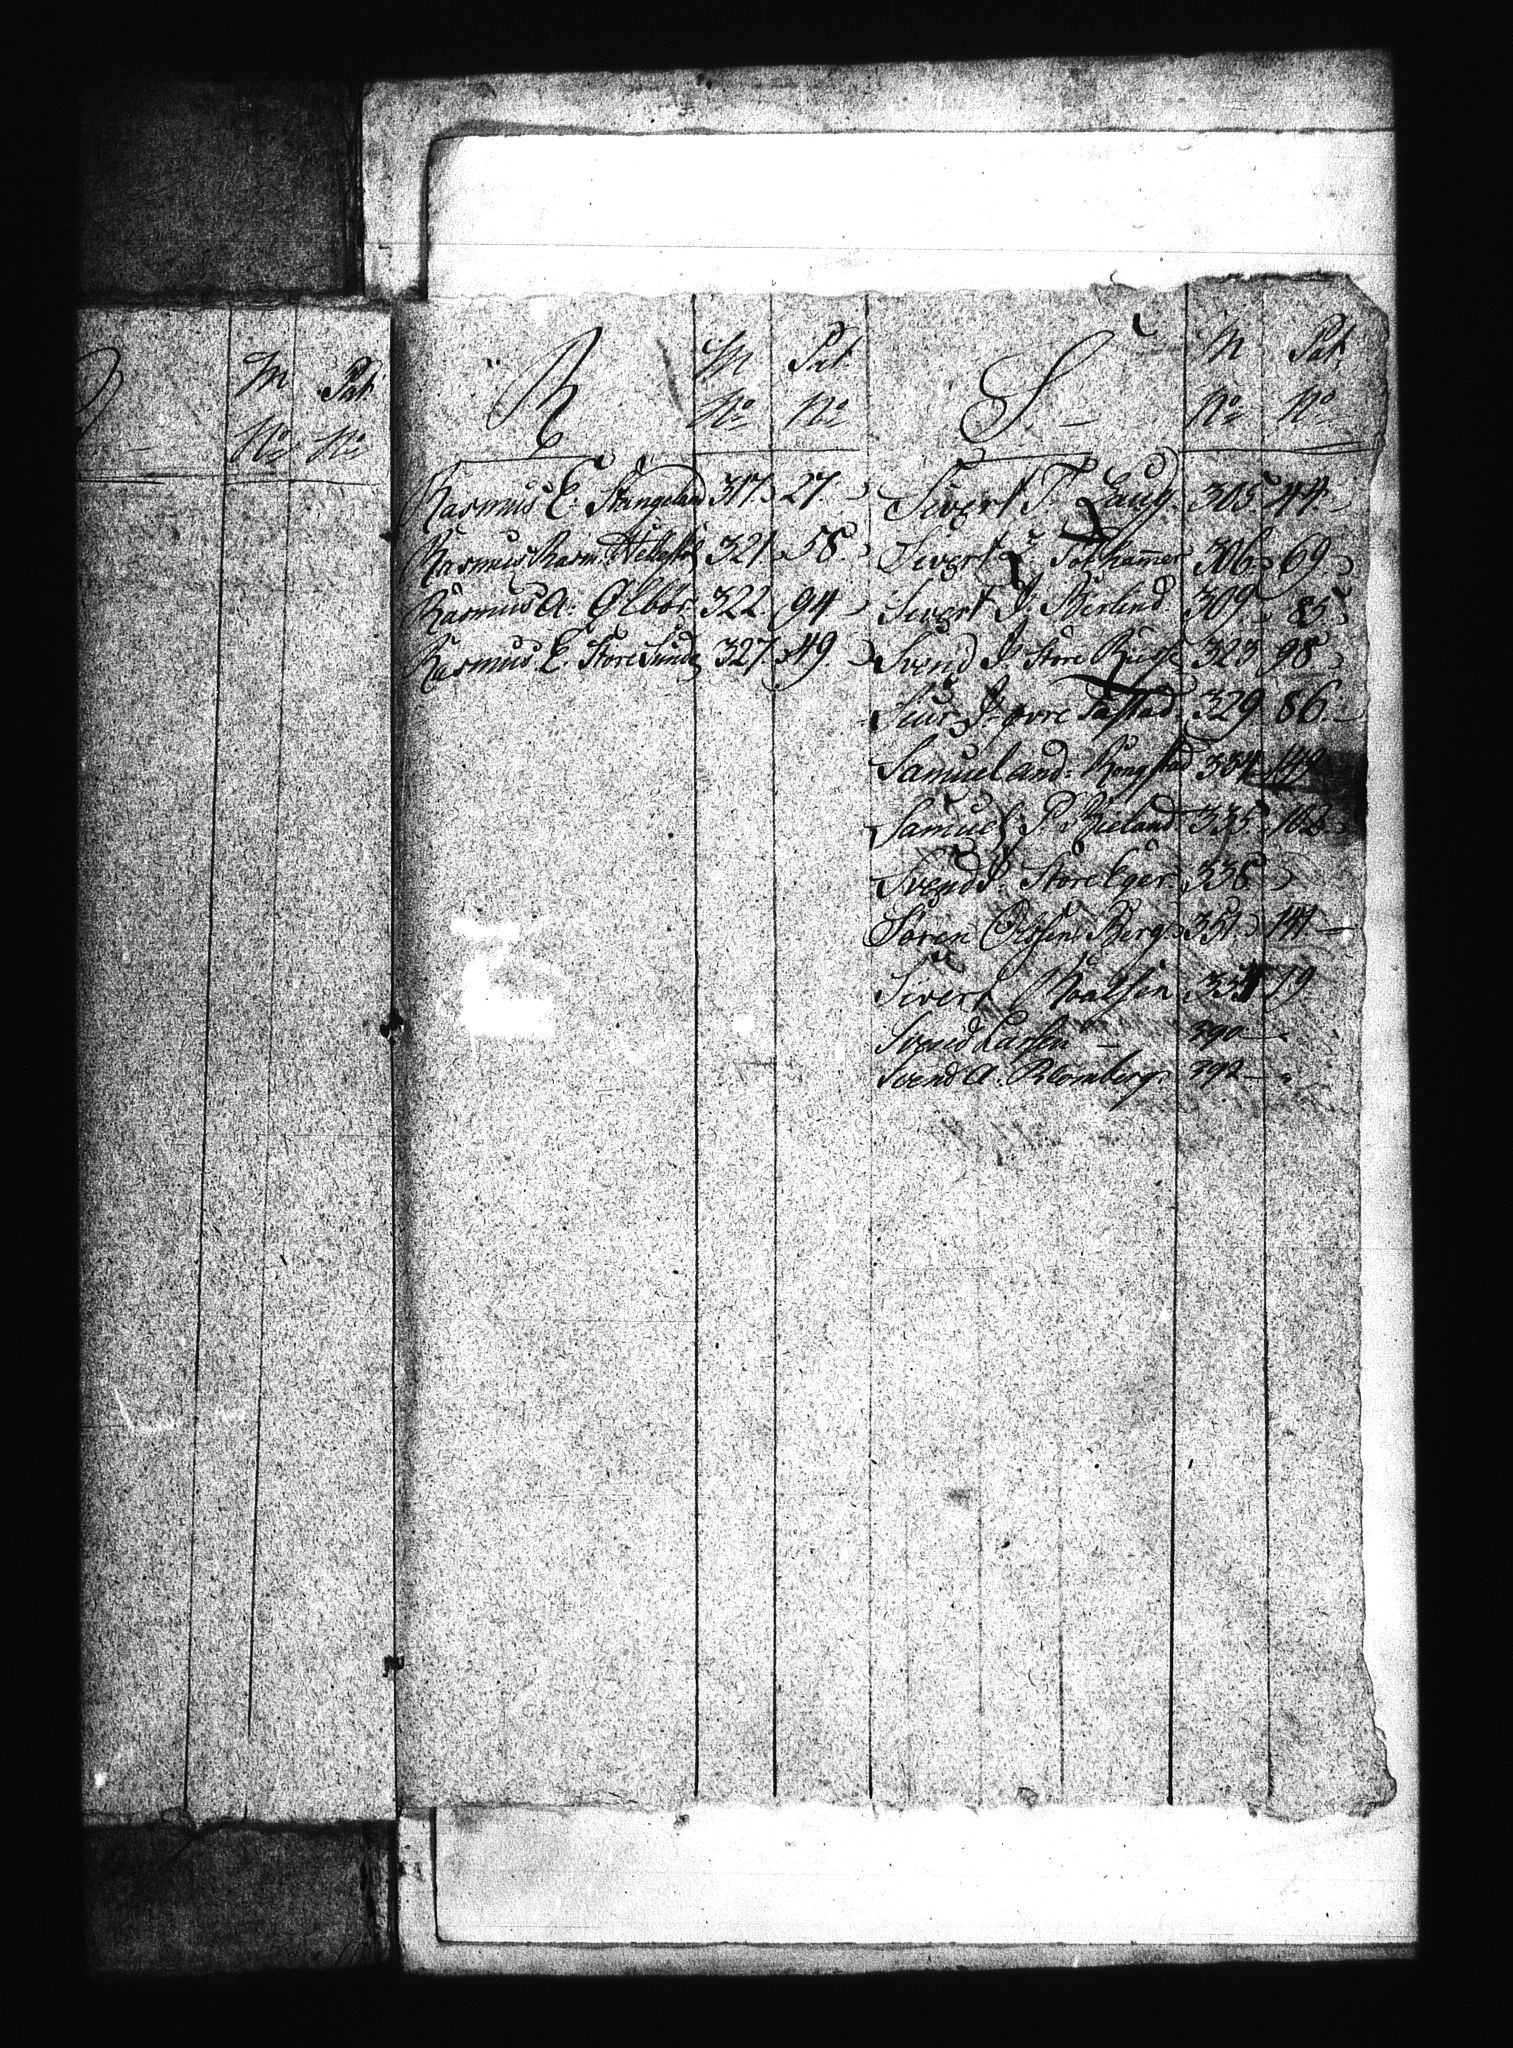 M Pat
No No
R M Pat
No No
Rasmus E. Stangeland 317. 27.
Rasmus Rasm. 321. 58.
Rasmus A. Ølbør. 322. 94
Rasmus. E. Store Sunde 327. 49.
S. M Pat
No No
Sivert T. Haug. 305. 44.
Sivert 306. 69
Sivert J. 309. 85
Svend J. Store 323. 98
J. øvre 329. 86.
Samuel And: 334. 149
Samuel P. 335. 162
Svend J. Store Eger. 338.
Søren Olssen Berg. 351. 141
Sivert Roalsen 19
Svend Larsen 390
Svend A. Blomberg. 392